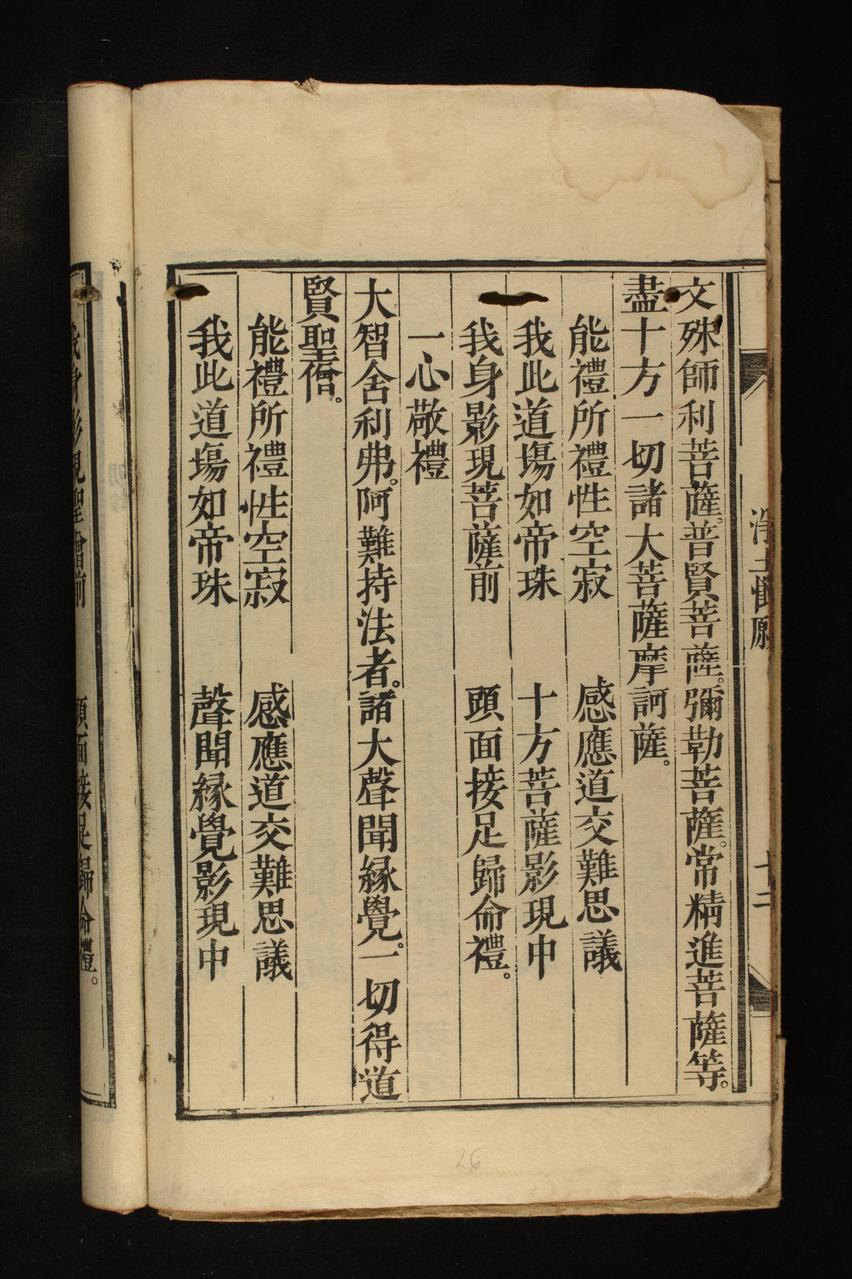 淨土懺願
十二
文殊師利菩薩。普賢菩薩。彌勒菩薩。常精進菩薩等。
盡十方一切諸大菩薩摩訶薩。
能禮所禮性空寂　感應道交難思議
我此道塲如帝珠　十方菩薩影現中
我身影現菩薩前　頭面接足歸命禮。
一心敬禮
大智舍利弗。阿難持法者。諸大聲聞緣覺。一切得道
賢聖僧。
能禮所禮性空寂　感應道交難思議
我此道塲如帝珠　聲聞緣覺影現中
我身影現聖僧前　頭面接足歸命禮。
26